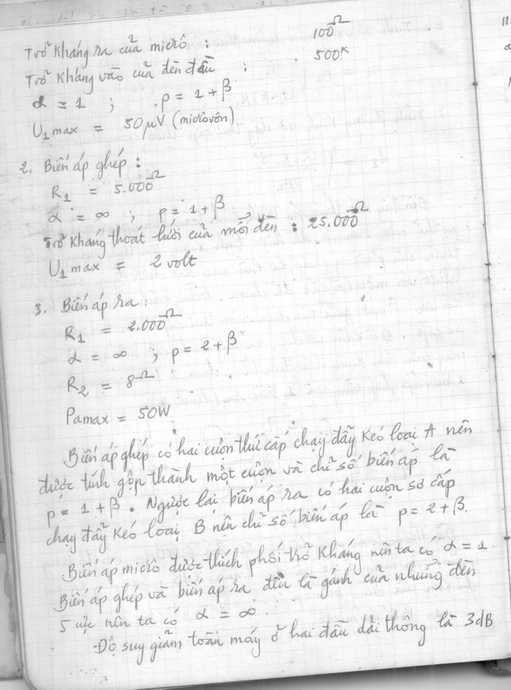 Trở kháng ra của micrô : 100Ω
Trở kháng vào của đèn đầu : 500K
α = 1 ; p = 1 + β
U₁max = 50µV (microvôn)
2. Biến áp ghép :
R₁ = 5.000Ω
α = ∞ ; p = 1 + β
Trở kháng thoát lưới của mỗi đèn : 25.000Ω
U₁max = 2 volt
3. Biến áp ra :
R₁ = 2.000Ω
α = ∞ ; p = 2 + β
R₂ = 8Ω
Pamax = 50W
Biến áp ghép có hai cuộn thứ cấp chạy đẩy kéo loại A nên
được tính gộp thành một cuộn và chỉ số biến áp là
p = 1 + β. Ngược lại biến áp ra có hai cuộn sơ cấp
chạy đẩy kéo loại B nên chỉ số biến áp là p = 2 + β.
Biến áp micrô được thích phối trở kháng nên ta có α = 1
Biến áp ghép và biến áp ra đều là gánh của những đèn
5 cực nên ta có α = ∞
Độ suy giảm toàn máy ở hai đầu dải thông là 3dB